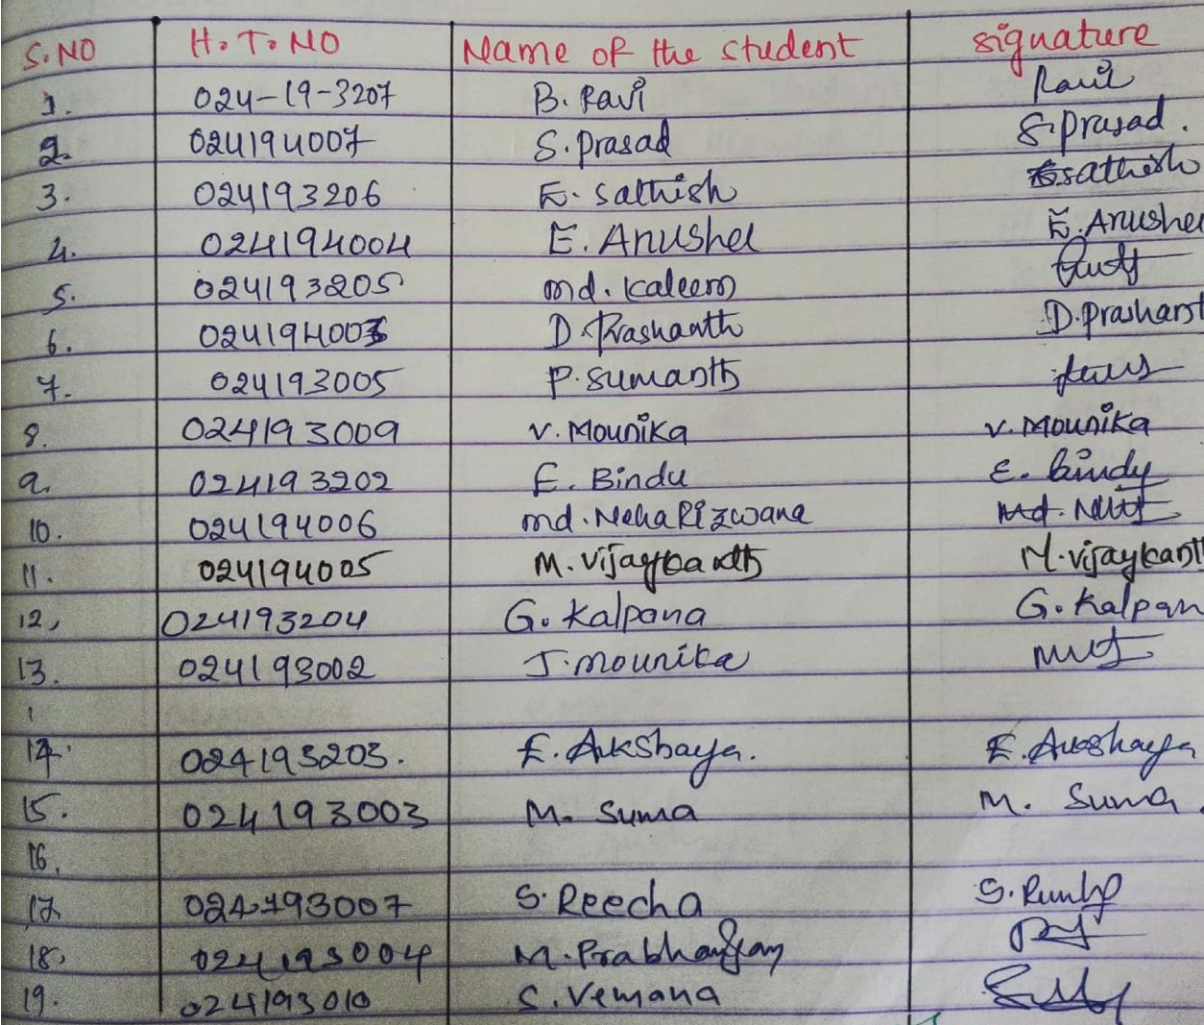 S.NO H.T.NO Name of the student signature
1. 024-19-3207 B. Ravi Ravi
2. 024194007 S. Prasad S. prasad.
3. 024193206 E. Sathish E sathish
4. 024194004 E. Anusha E. Anusha
5. 024193205 md. kaleem
6. 024194003 D. Prashanth D. Prashant
7. 024193005 P. Sumanth
8. 024193009 V. Mounika V. Mounika
9. 024193202 E. Bindu E. bindu
10. 024194006 md. Neha Rizwana Md.
11. 024194005 M. Vijaykanth M. Vijaykanth
12, 024193204 G. Kalpana G. Kalpan
13. 024193002 J. mounika
14. 024193203. E. Akshaya. E. Akshaya
15. 024193003 M. Suma M. Suma.
16.
17. 024193007 S. Reecha S.
18. 024193004 M. Prabhanjan
19. 024193010 S. Vemana